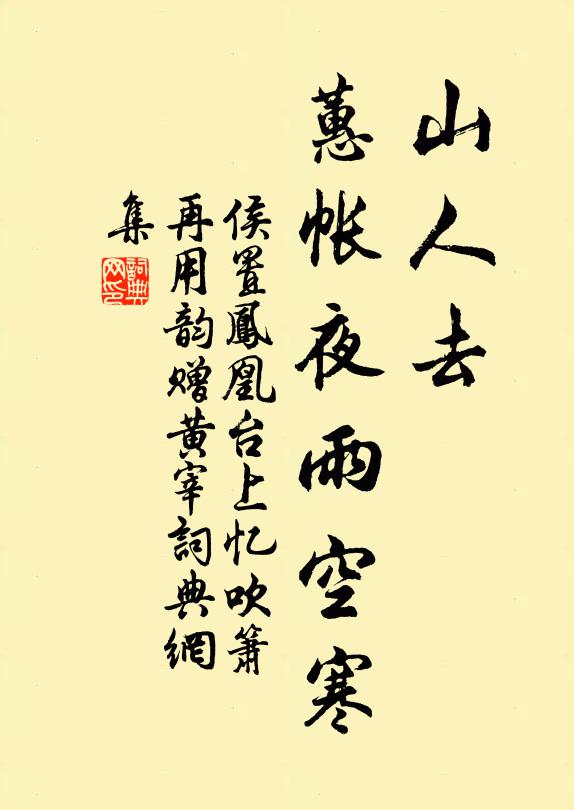 山人去
蕙帐夜雨空寒
侯置鳳凰台上忆吹箫
再用韵赠黄宰詞典網
集
詞典网印